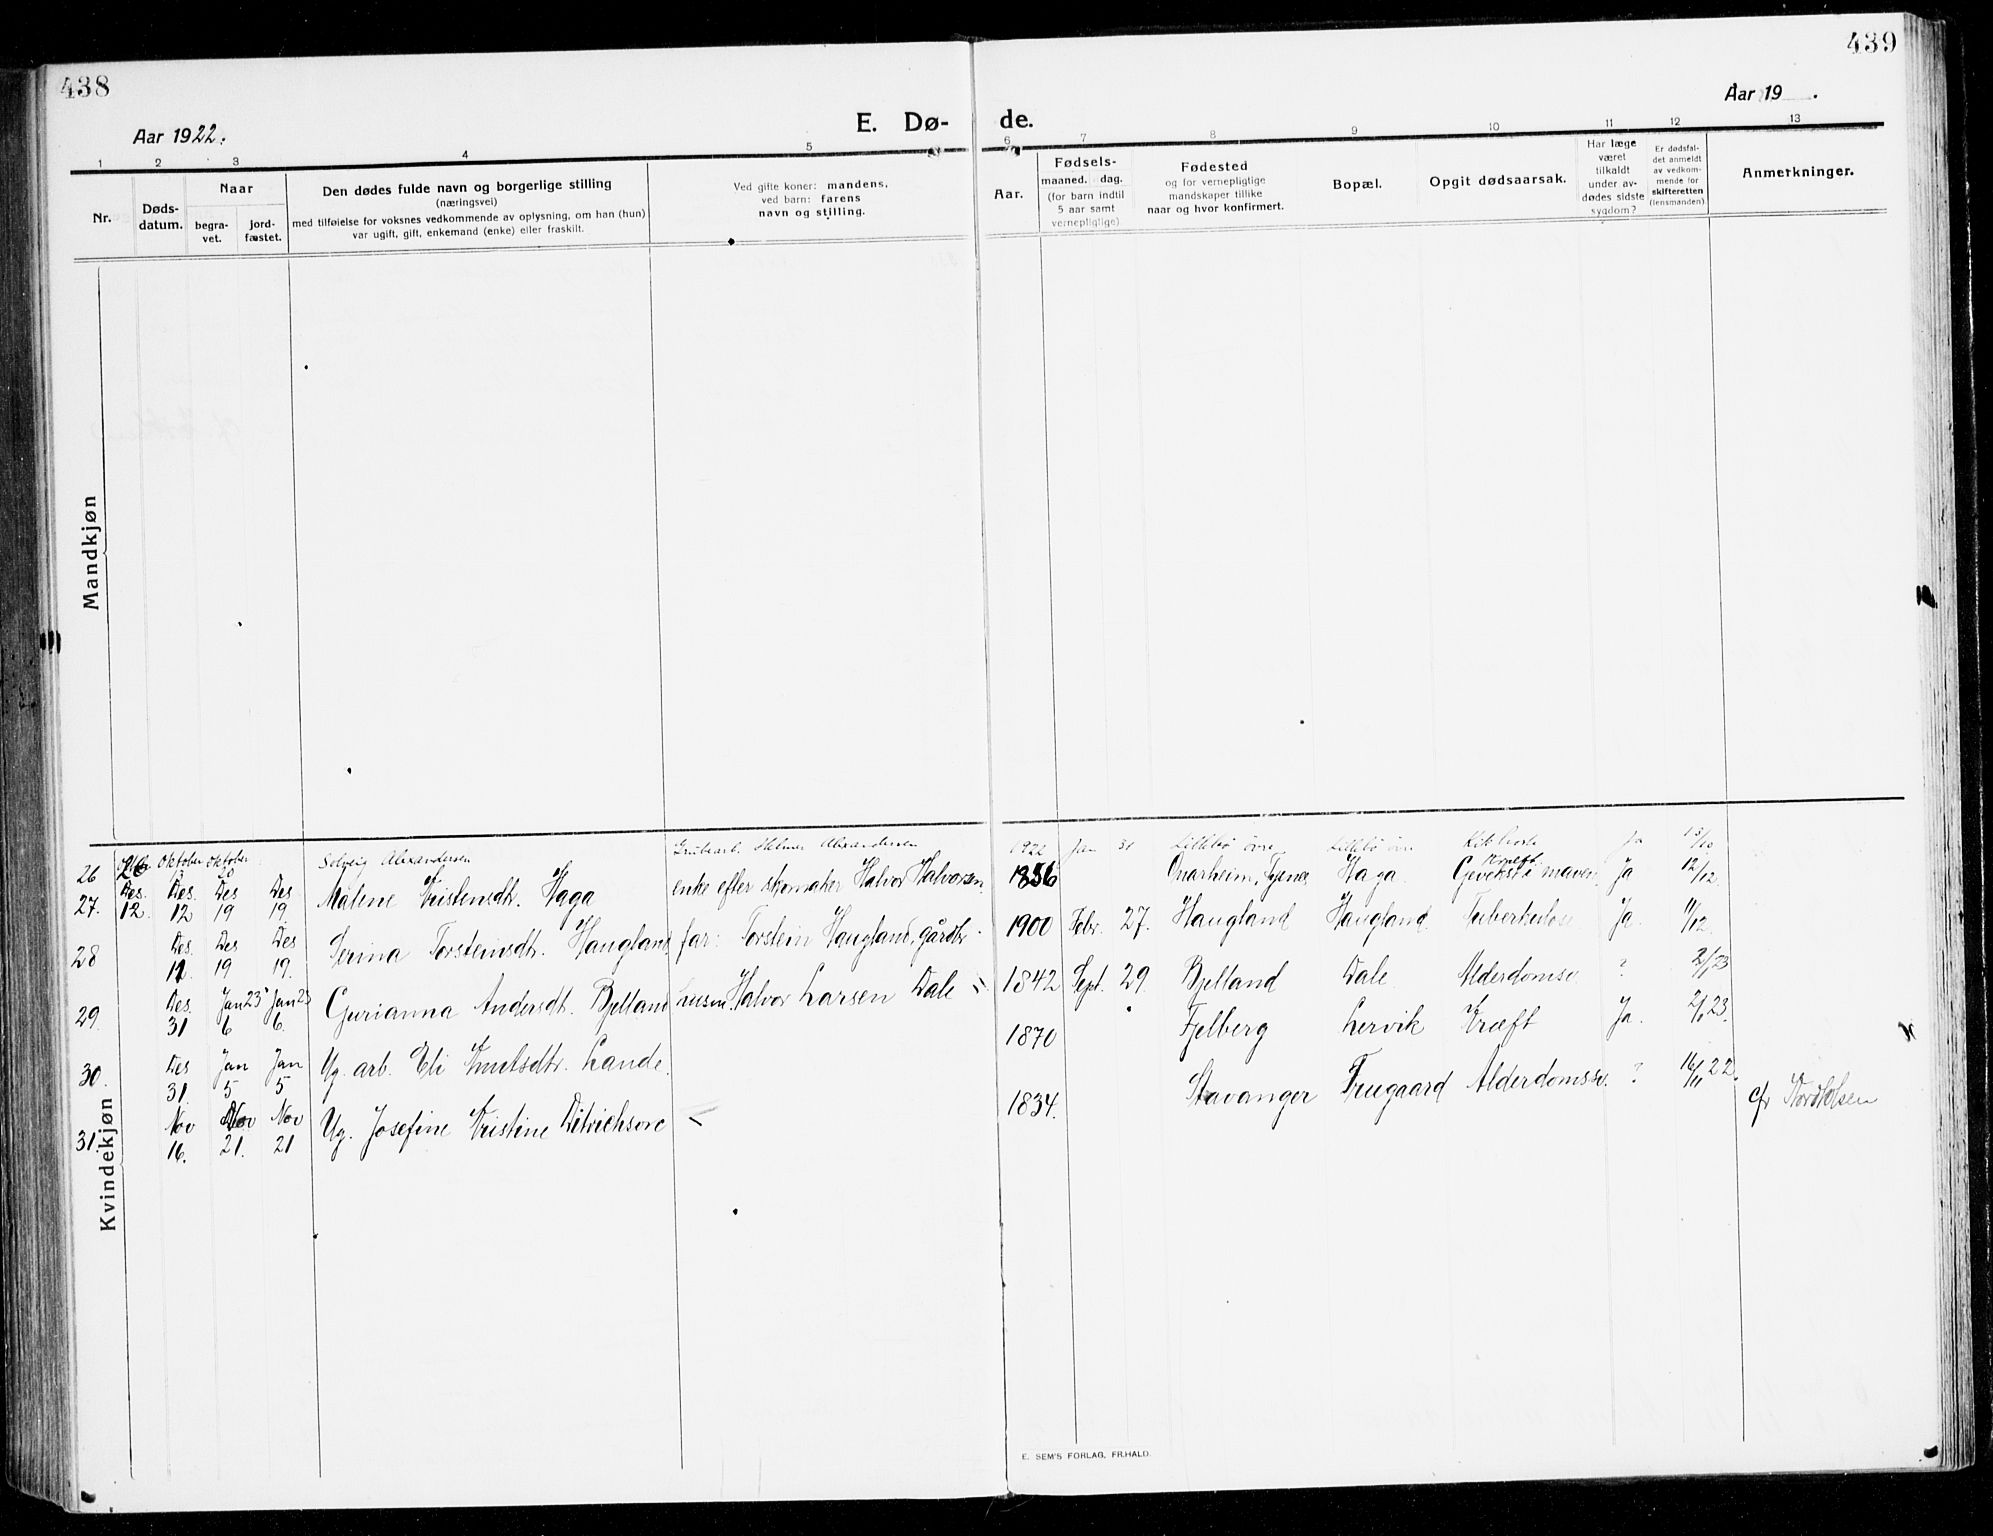 438
439
Aar 1922.
E. Dø-
de.
Aar 19 .
1 2 3 4 5 6 7 8 9 10 11 12 13
Nr.
Døds-
datum.
Naar
begra-
vet.
jord-
fæstet.
Den dødes fulde navn og borgerlige stilling
(næringsvei)
med tilføielse for voksnes vedkommende av oplysning, om han (hun)
var ugift, gift, enkemand (enke) eller fraskilt.
Ved gifte koner: mandens,
ved barn: farens
navn og stilling.
Aar.
Fødsels-
maaned. dag.
(for barn indtil
5 aar samt
vernepligtige)
Fødested
og for vernepligtige
mandskaper tillike
naar og hvor konfirmert.
Bopæl.
Opgit dødsaarsak.
Har læge
været
tilkaldt
under av-
dødes sidste
sygdom?
Er dødsfal-
det anmeldt
av vedkom-
mende for
skifteretten
(lensmanden).
Anmerkninger.
Mandkjøn
Kvindekjøn
26 Oktober 13 Oktober 20 Solveig Alexandersen Grubearb. Helmer Alexandersen 1922 Jan 31 Lillebö övre Lillebö övre Kikhoste Ja 13/10
27. Des. 12 Des 19 Des 19. Malene Kristensdt. Haga enke efter skomaker Halvor Halvorsen 1856 Onarheim, Tysnes Haga Kræft Ja 12/12
28 Des. 12 Des 19 Des 19. Serina Torsteinsdt. Haugland far: Torstein Haugland, gårdbr. 1900 Febr. 27. Haugland Haugland Tuberkulose Ja. 11/12.
29. Des 31 Jan 23 6 Jan 23 6. Gurianna Andersdt. Bjelland Halvor Larsen Dale 1842 Sept. 29. Bjelland Dale Alderdomsv ? 2/1 23
30. Des 31. Jan 5 Jan 5 Ug. arb. Eli Knutsdtr. Lande. 1870 Fjelberg Lervik Kræft Ja. 2/1 23.
31. Nov 16. Nov 21. Nov 21 Ug. Josefine Kristine Ditrichsen 1834. Stavanger Trugaard Alderdomssv. ? 16/11 22. cfr
E. SEM'S FORLAG, FR.HALD.